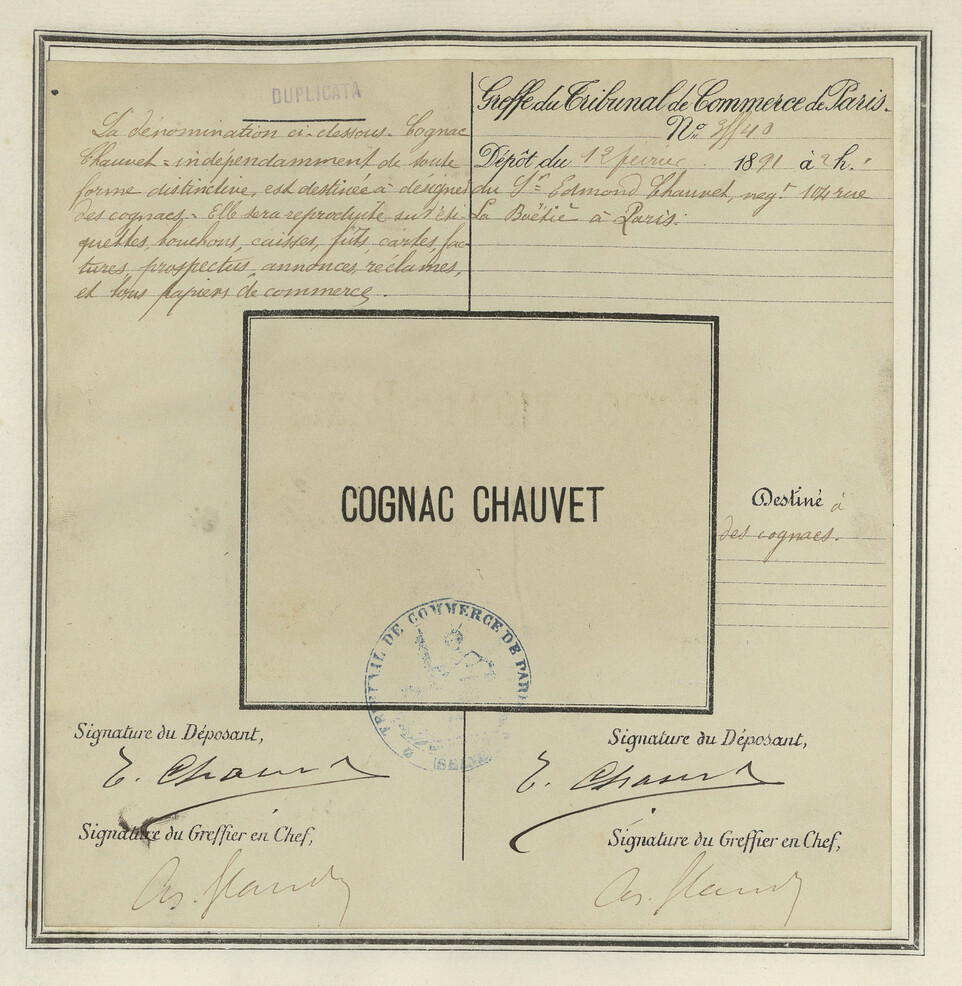 DUPLICATA
La dénomination ci-dessous - Cognac
Chauvet = indépendamment de toute
forme distinctive, est destinée à désigner
des cognacs. - Elle sera reproduite sur éti
quettes, bouchons, caisses, fûts cartes, fac-
tures, prospectus, annonces, réclames,
et tous papiers de commerce.
Greffe du Tribunal de Commerce de Paris.
No
Dépôt du 12 1891 à 2 h.
du Sr Edmond Chauvet, negt 104 rue
La Boëtie à Paris.
COGNAC CHAUVET
Destiné à
des cognacs.
TRIBUNAL DE COMMERCE DE PARIS
(SEINE)
Signature du Déposant,
E. Chauvet
Signature du Greffier en Chef,
Signature du Déposant,
E. Chauvet
Signature du Greffier en Chef,